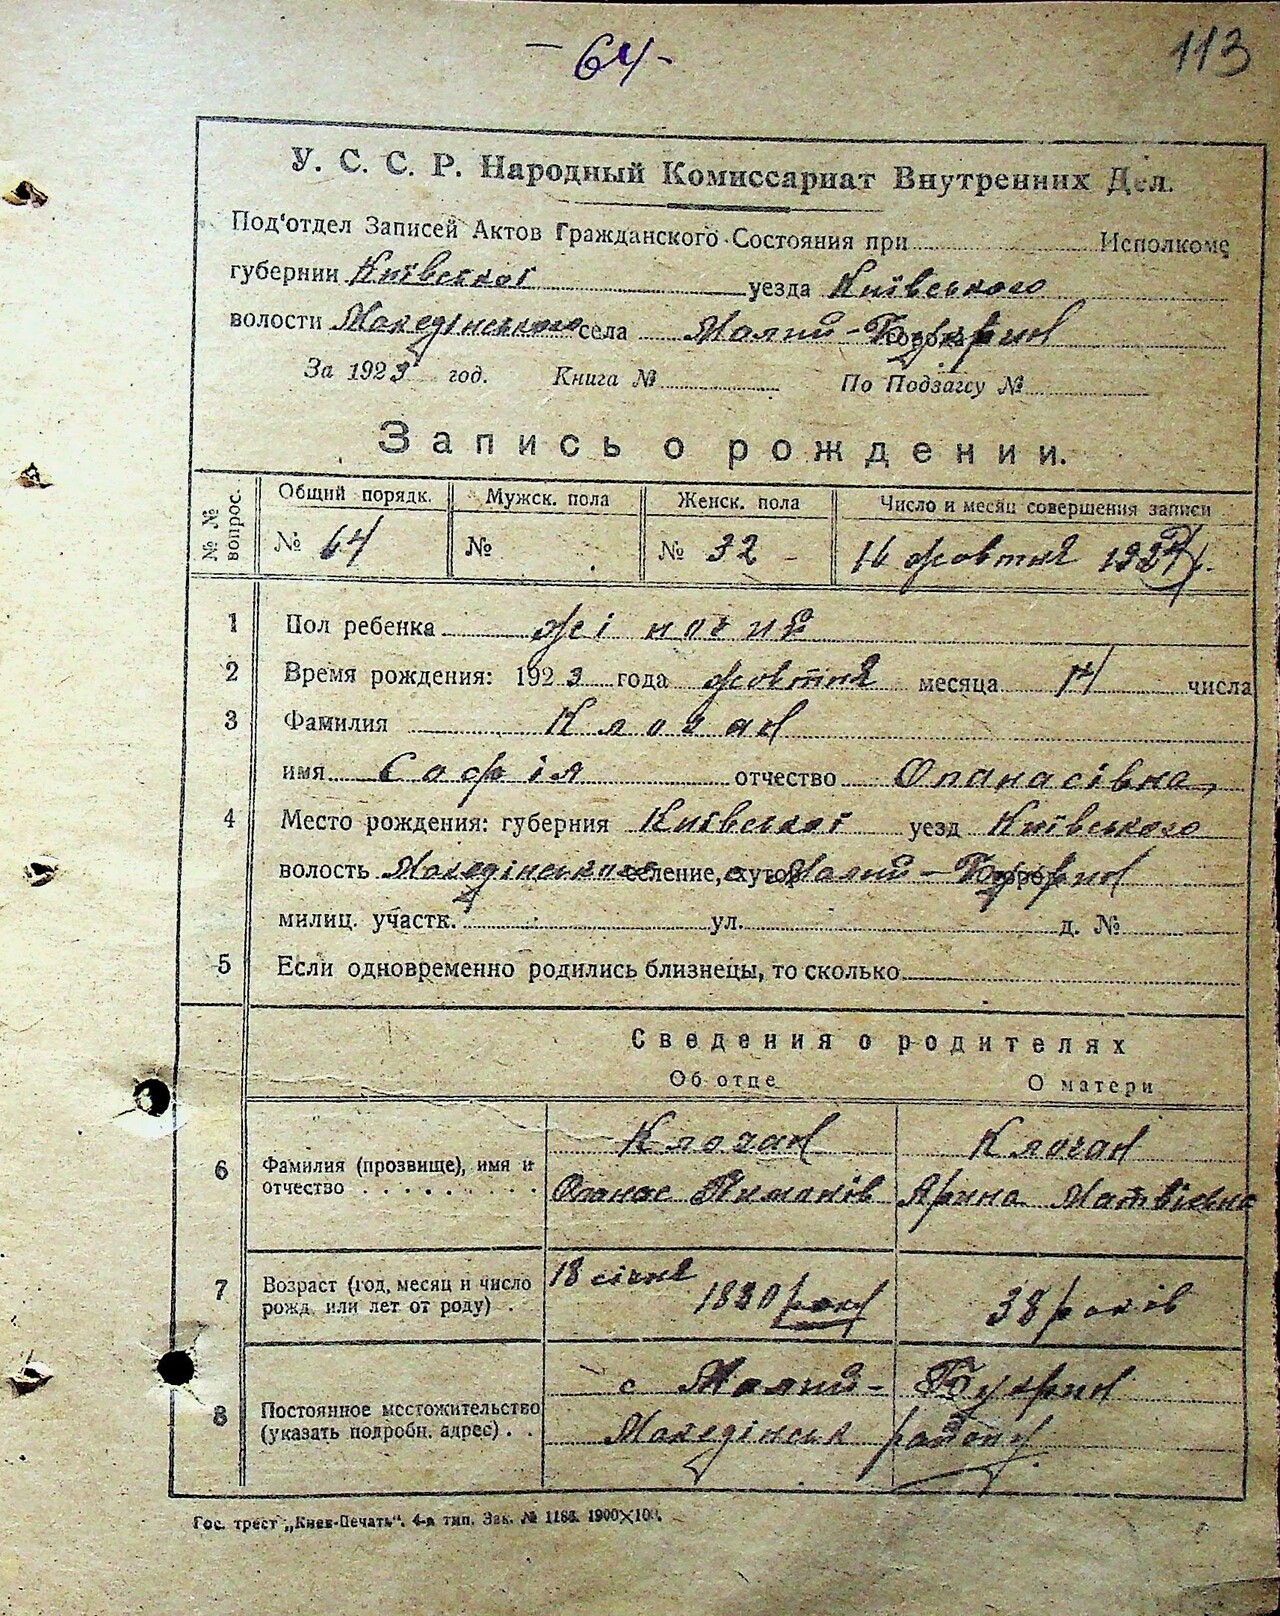 - 64 -
113
У. С. С. Р. Народный Комиссариат Внутренних Дел.
Под'отдел Записей Актов Гражданского Состояния при Исполкоме
губернии Київської уезда Київського
волости Македінського села Малий-Букрин
За 1923 год. Книга № По Подзагсу №
Запись о рождении.
№№ вопрос. Общий порядк. Мужск. пола Женск. пола Число и месяц совершения записи
№ 64 № № 32 - 16 жовтня 192
1 Пол ребенка жіночий
2 Время рождения: 1923 года жовтня месяца 14 числа
3 Фамилия Клочан
имя Софія отчество Опанасівна
4 Место рождения: губерния Київської уезд Київського
волость Македінського селение, хутор Малий-Букрин
милиц. участк. ул. д. №
5 Если одновременно родились близнецы, то сколько
Сведения о родителях
Об отце О матери
Клочан Клочан
6 Фамилия (прозвище), имя и
отчество Опанас Ярина Матвієвна
7 Возраст (год, месяц и число 18 січня
рожд. или лет от роду) 1880 року 38 років
с Малий- Букрин
8 Постоянное местожительство
(указать подробн. адрес) Македінськ району
Гос. трест „Киев-Печать“. 4-я тип. Зак. № 1186. 1900×100.